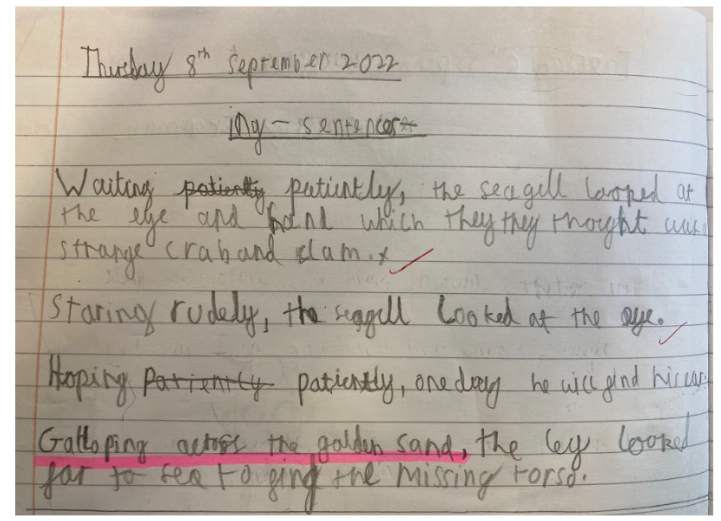 Thursday 8th September 2022
ing - sentences
Waiting patiently patiently, the seagull looked at
the eye and hand which they they thought was
strange crab and clam.
Staring rudely, the seagull looked at the eye.
Hoping Patiently patiently, one day he will find his ear.
Galloping across the golden sand, the leg looked
far to sea to find the missing torso.